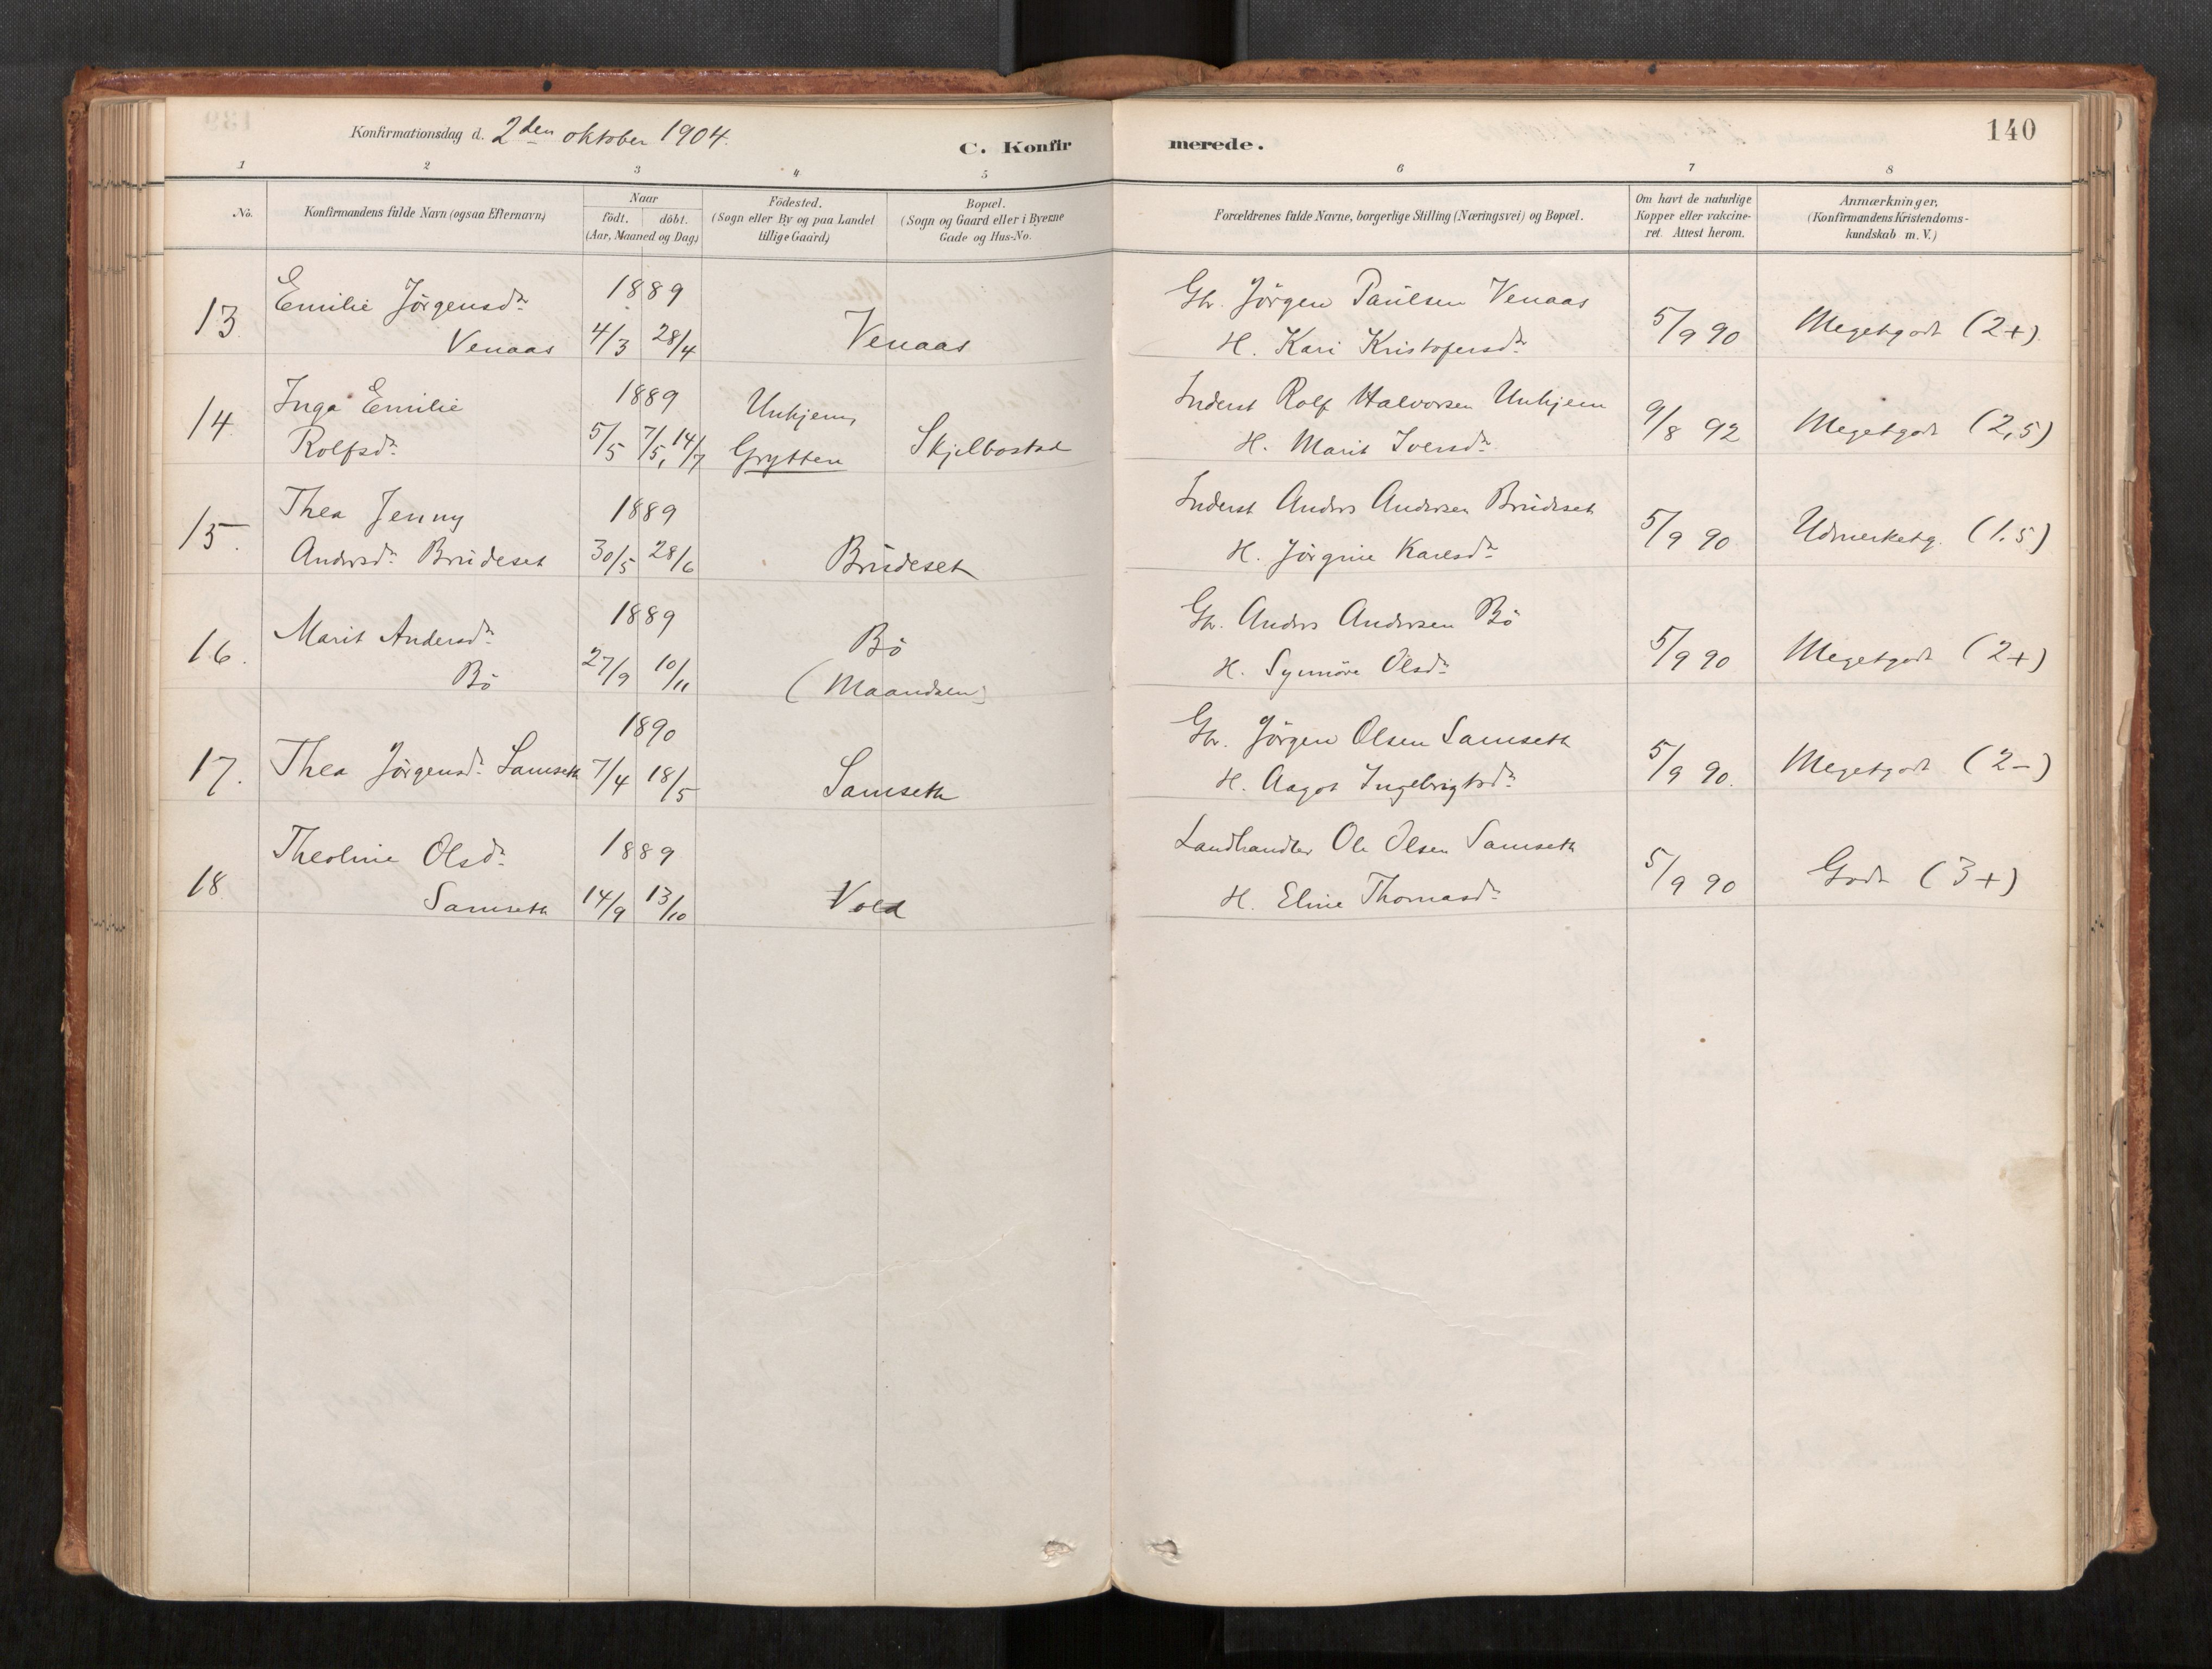 Konfirmationsdag d. 2den oktober 1904.
C. Konfirmerede.
140
1 2 3 4 5 6 7 8
No.
Konfirmandens fulde Navn (ogsaa Efternavn)
Naar
födt. döbt.
(Aar, Maaned og Dag)
Födested.
(Sogn eller By og paa Landet
tillige Gaard)
Bopæl.
(Sogn og Gaard eller i Byerne
Gade og Hus-No.
Forældrenes fulde Navne, borgerlige Stilling (Næringsvei) og Bopæl.
Om havt de naturlige
Kopper eller vakcine-
ret. Attest herom.
Anmærkninger,
(Konfirmandens Kristendoms-
kundskab m. V.)
13. Emilie Jörgensdr. 1889 Gbr. Jörgen Paulsen Venaas
Venaas 4/3 28/4 Venaas H. Kari Kristofersdr. 5/9 90 Megetgodt (2+)
14. Inga Emilie 1889 Unhjem, Inderst Rolf Halvorsen Unhjem
Rolfsdr. 5/5 7/5, 14/7 Grytten Skjelbostad H. Marit Iversdr. 9/8 92 Megetgodt (2,5)
15. Thea Jenny 1889 Inderst Anders Andersen Brudeset
Andersdr. Brudeset 30/5 28/6 Brudeset H. Jörgine Karlsdr. 5/9 90 Udmerketg. (1.5)
16. Marit Andersdr. 1889 Bö Gbr. Anders Andersen Bö
Bö 27/9 10/11 (Maandalen) H. Synnöve Olsdr. 5/9 90 Megetgodt (2+)
17. 1890 Gbr. Jörgen Olsen Samseth
Thea Jörgensdr. Samseth 7/4 18/5 Samseth H. Aagot Ingebrigtsdr. 5/9 90. Megetgodt (2-)
18 Theoline Olsdr. 1889 Landhandler Ole Olsen Samseth
Samseth 14/9 13/10 Vold H. Eline Thomasdr. 5/9 90 Godt (3+)